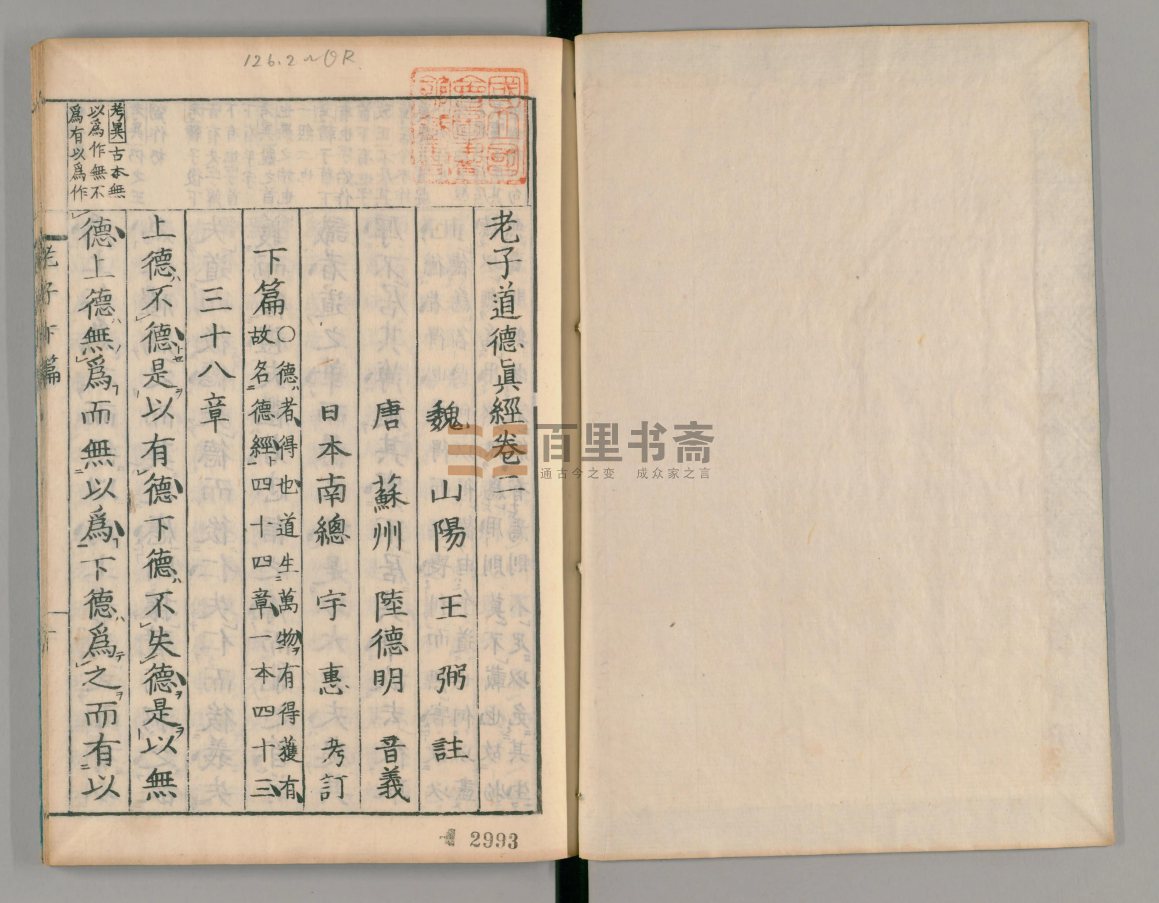 126.2~OR
老子道德眞經卷二
魏 山陽 王弼 註
唐 蘇州 陸德明 音義
日本南總 宇惠 考訂
下篇○德者得也道生萬物有得獲有
故名德經四十四章一本四十三
三十八章
上德不德是以有德下德不失德是以無
德上德無爲而無以爲下德爲之而有以
考異古本無
以爲作無不
爲有以爲作
老子下篇
2993
百里书斋
通古今之变 成众家之言